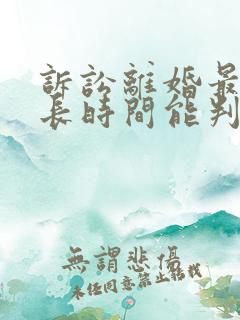 訴訟離婚最
長時間能判
無謂悲傷
未經同意禁止轉載